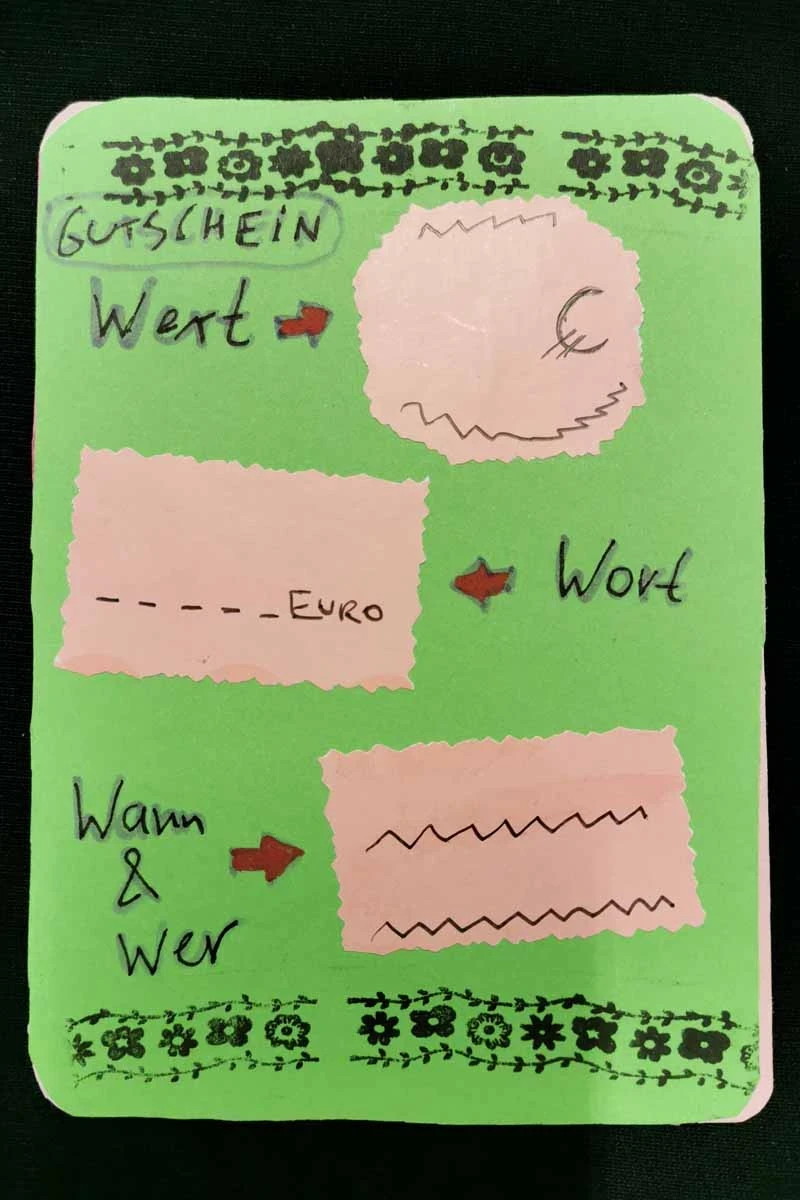 GUTSCHEIN
Wert
€
Wort
_ _ _ _ _ EURO
Wann
&
Wer